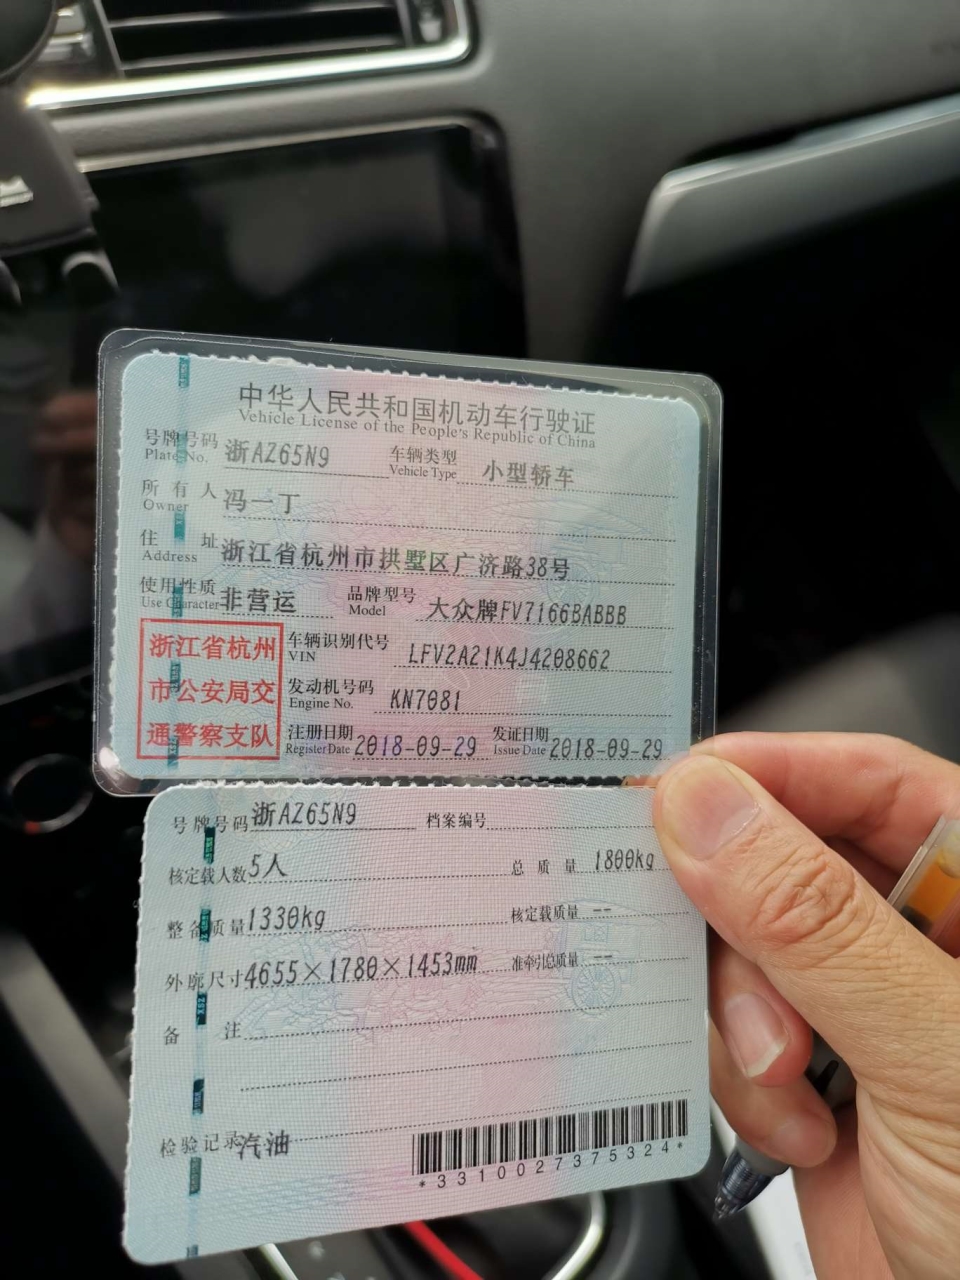 中华人民共和国机动车行驶证
Vehicle License of the People's Republic of China
号牌号码 浙AZ65N9 车辆类型 小型轿车
Plate No. Vehicle Type
所有人 冯一丁
Owner
住址 浙江省杭州市拱墅区广济路38号
Address
使用性质 非营运 品牌型号 大众牌FV7166BABBB
Use Character Model
浙江省杭州
市公安局交
通警察支队
车辆识别代号 LFV2A21K4J4208662
VIN
发动机号码 KN7081
Engine No.
注册日期 2018-09-29 发证日期 2018-09-29
Register Date Issue Date
号牌号码 浙AZ65N9 档案编号
核定载人数 5人 总质量 1800kg
整备质量 1330kg 核定载质量 --
外廓尺寸 4655×1780×1453mm 准牵引总质量 --
备注
检验记录 汽油
*3310027375324*